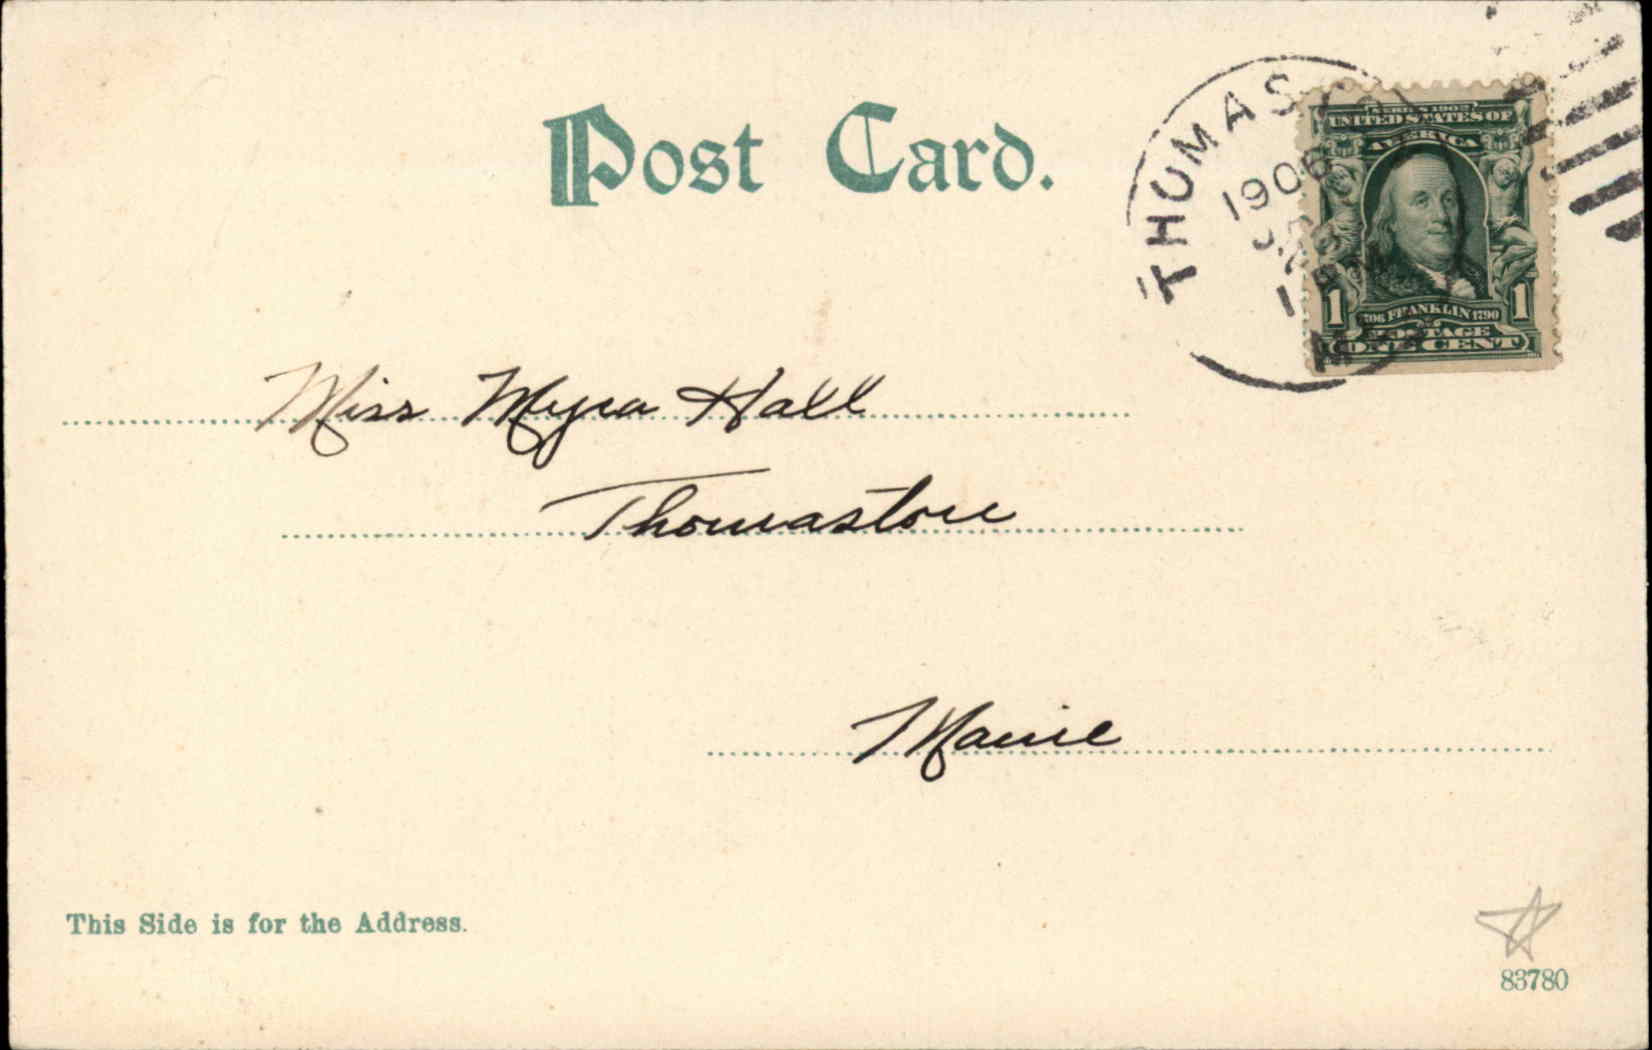 Post Card.
THOMAS
1906
SERIES 1902
UNITED STATES OF
AMERICA
1 FRANKLIN 1790 1
POSTAGE
ONE CENT
Miss Myra Hall
Thomaston
Maine
This Side is for the Address.
83780